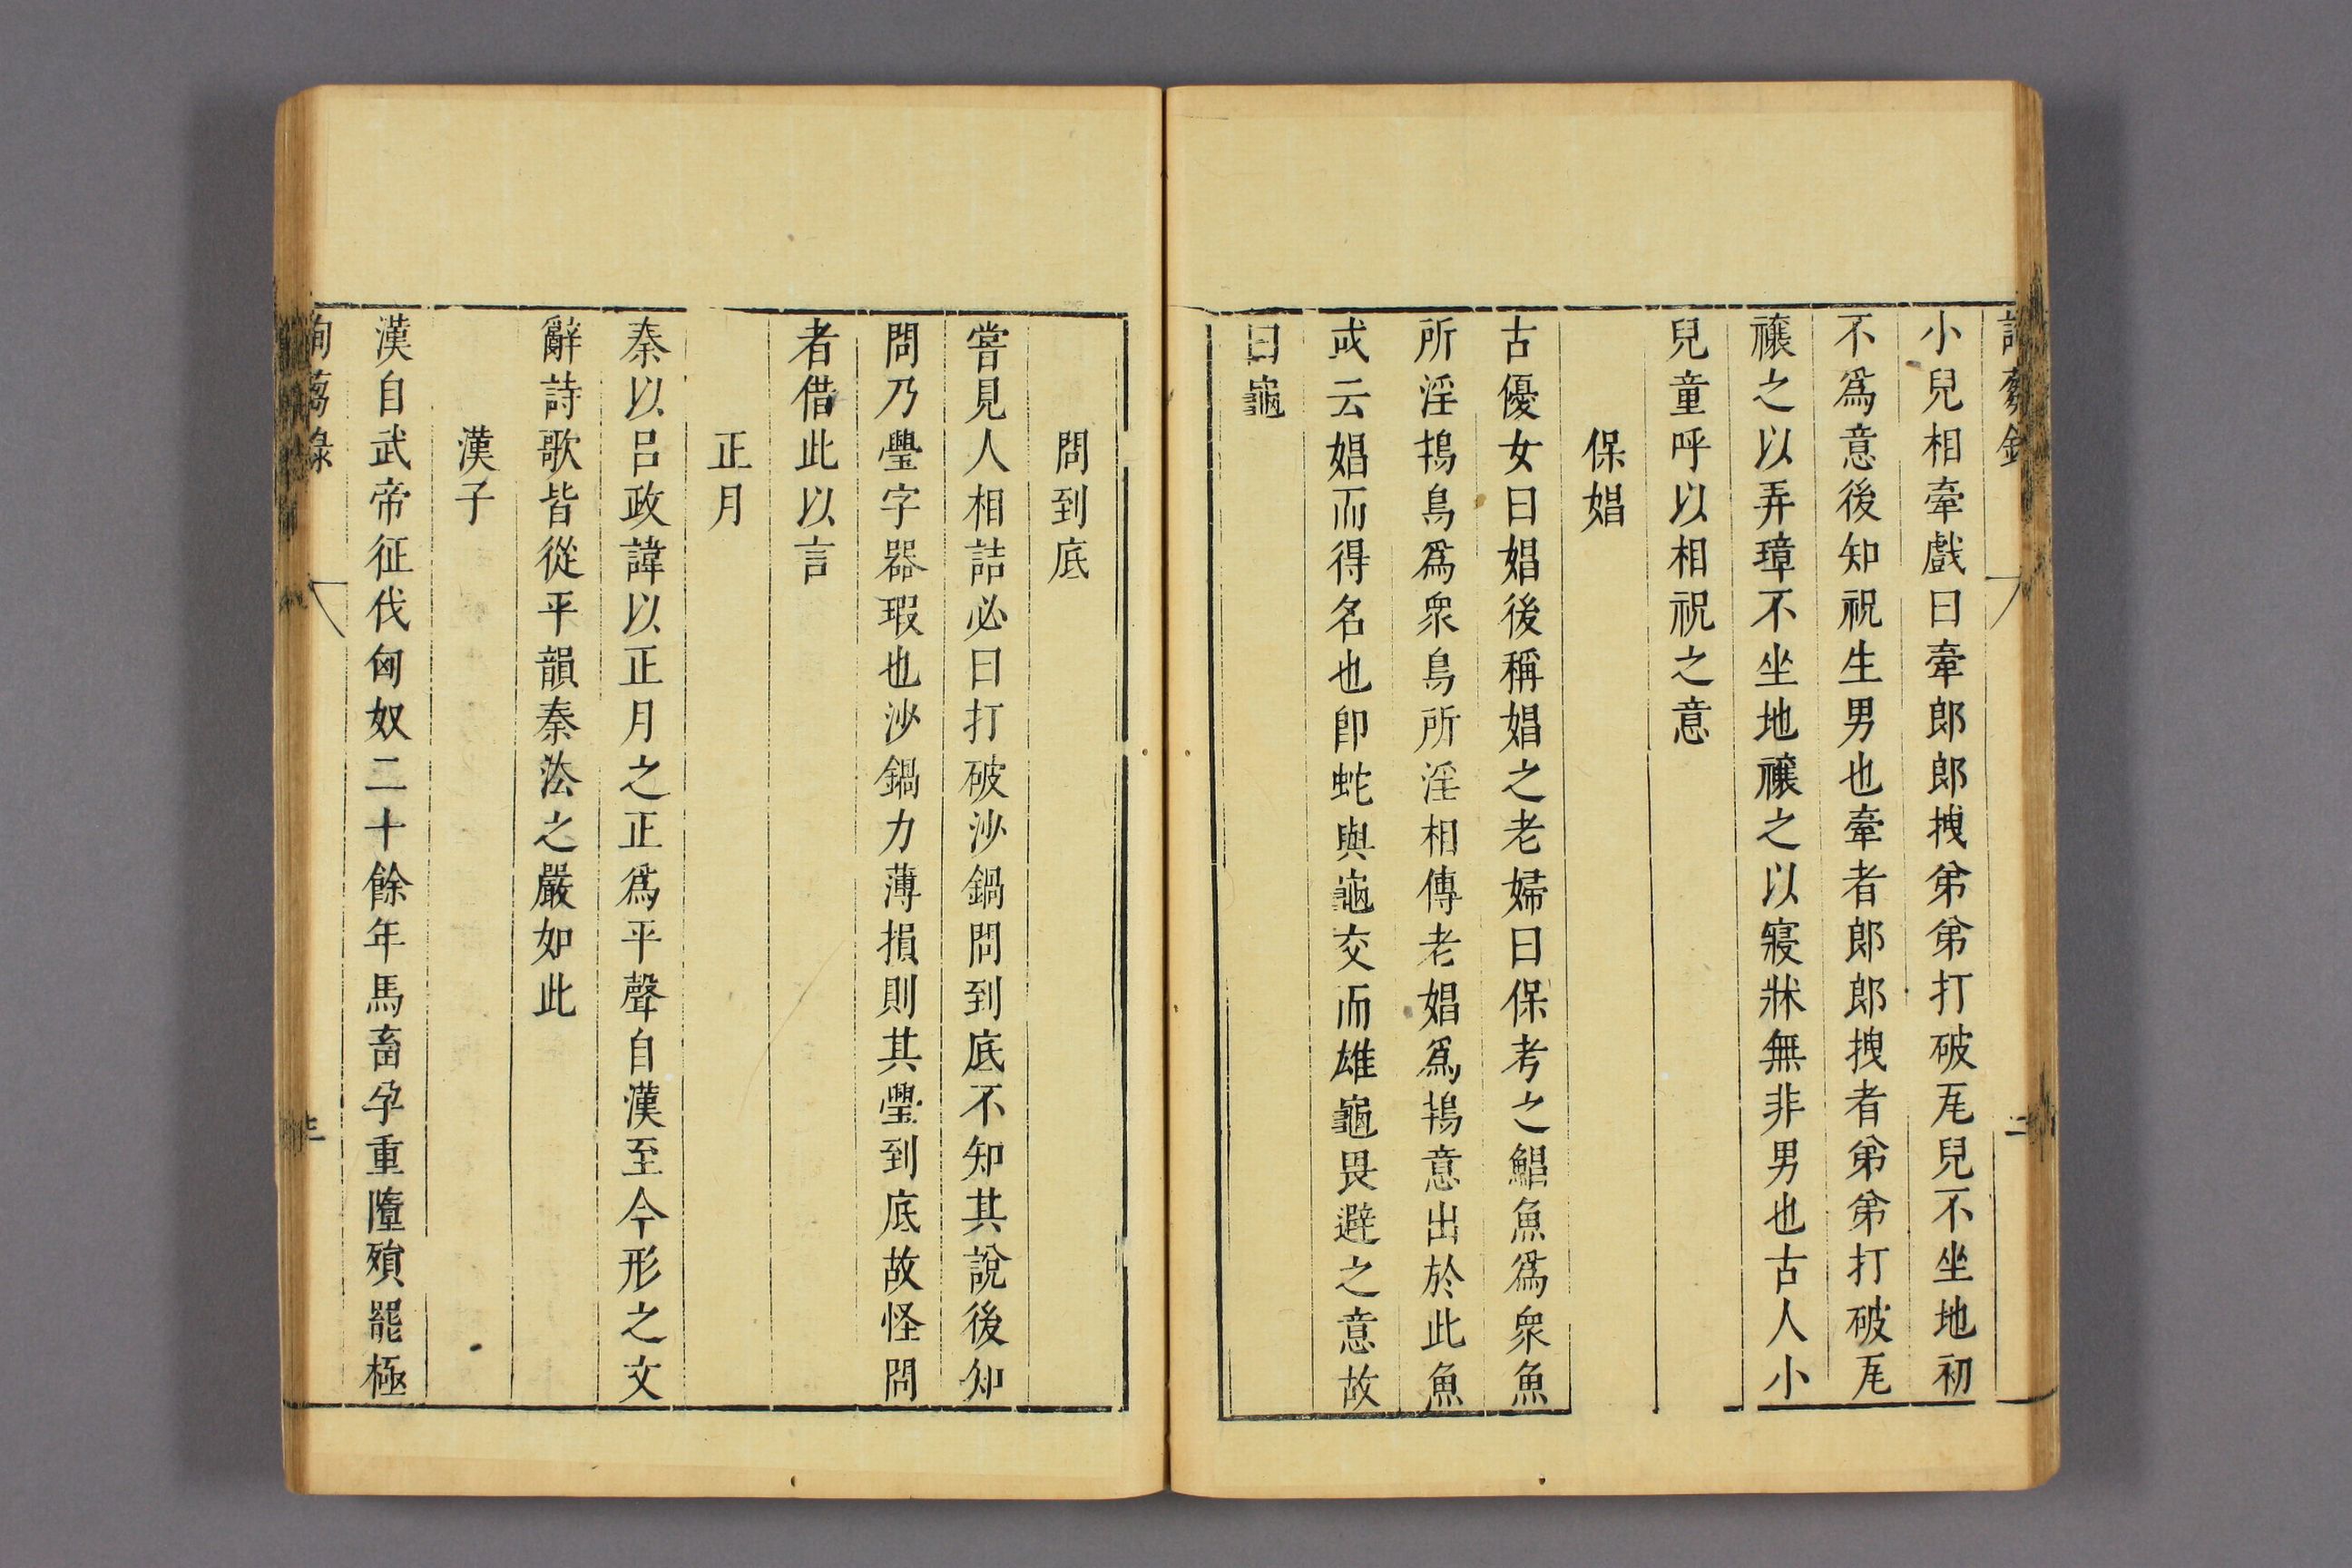 小兒相牽戲曰牽郎郎拽弟弟打破瓦兒不坐地初
不爲意後知祝生男也牽者郎郎拽者弟弟打破瓦
禳之以弄璋不坐地禳之以寢牀無非男也古人小
兒童呼以相祝之意
保娼
古優女曰娼後稱娼之老婦曰保考之鯧魚爲衆魚
所淫鴇鳥爲衆鳥所淫相傳老娼爲鴇意出於此魚
或云娼而得名也卽蛇與龜交而雄龜畏避之意故
曰龜
問到底
嘗見人相詰必曰打破沙鍋問到底不知其說後知
問乃璺字器瑕也沙鍋力薄損則其璺到底故怪問
者借此以言
正月
秦以呂政諱以正月之正爲平聲自漢至今形之文
辭詩歌皆從平韻秦法之嚴如此
漢子
漢自武帝征伐匈奴二十餘年馬畜孕重墮殰罷極